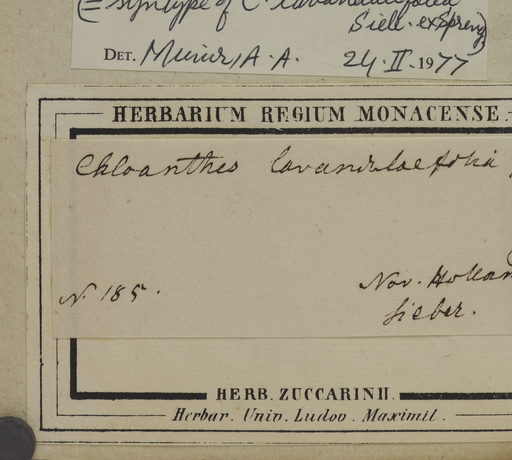 (= syntype of C. lavandulifolia
Sieb. ex Spreng)
DET. Munir, A.A. 24.II.1977
HERBARIUM REGIUM MONACENSE.
Chloanthes lavandulaefolia
Nov. Hollan
N. 185.
Sieber.
HERB. ZUCCARINII.
Herbar. Univ. Ludov. Maximil.